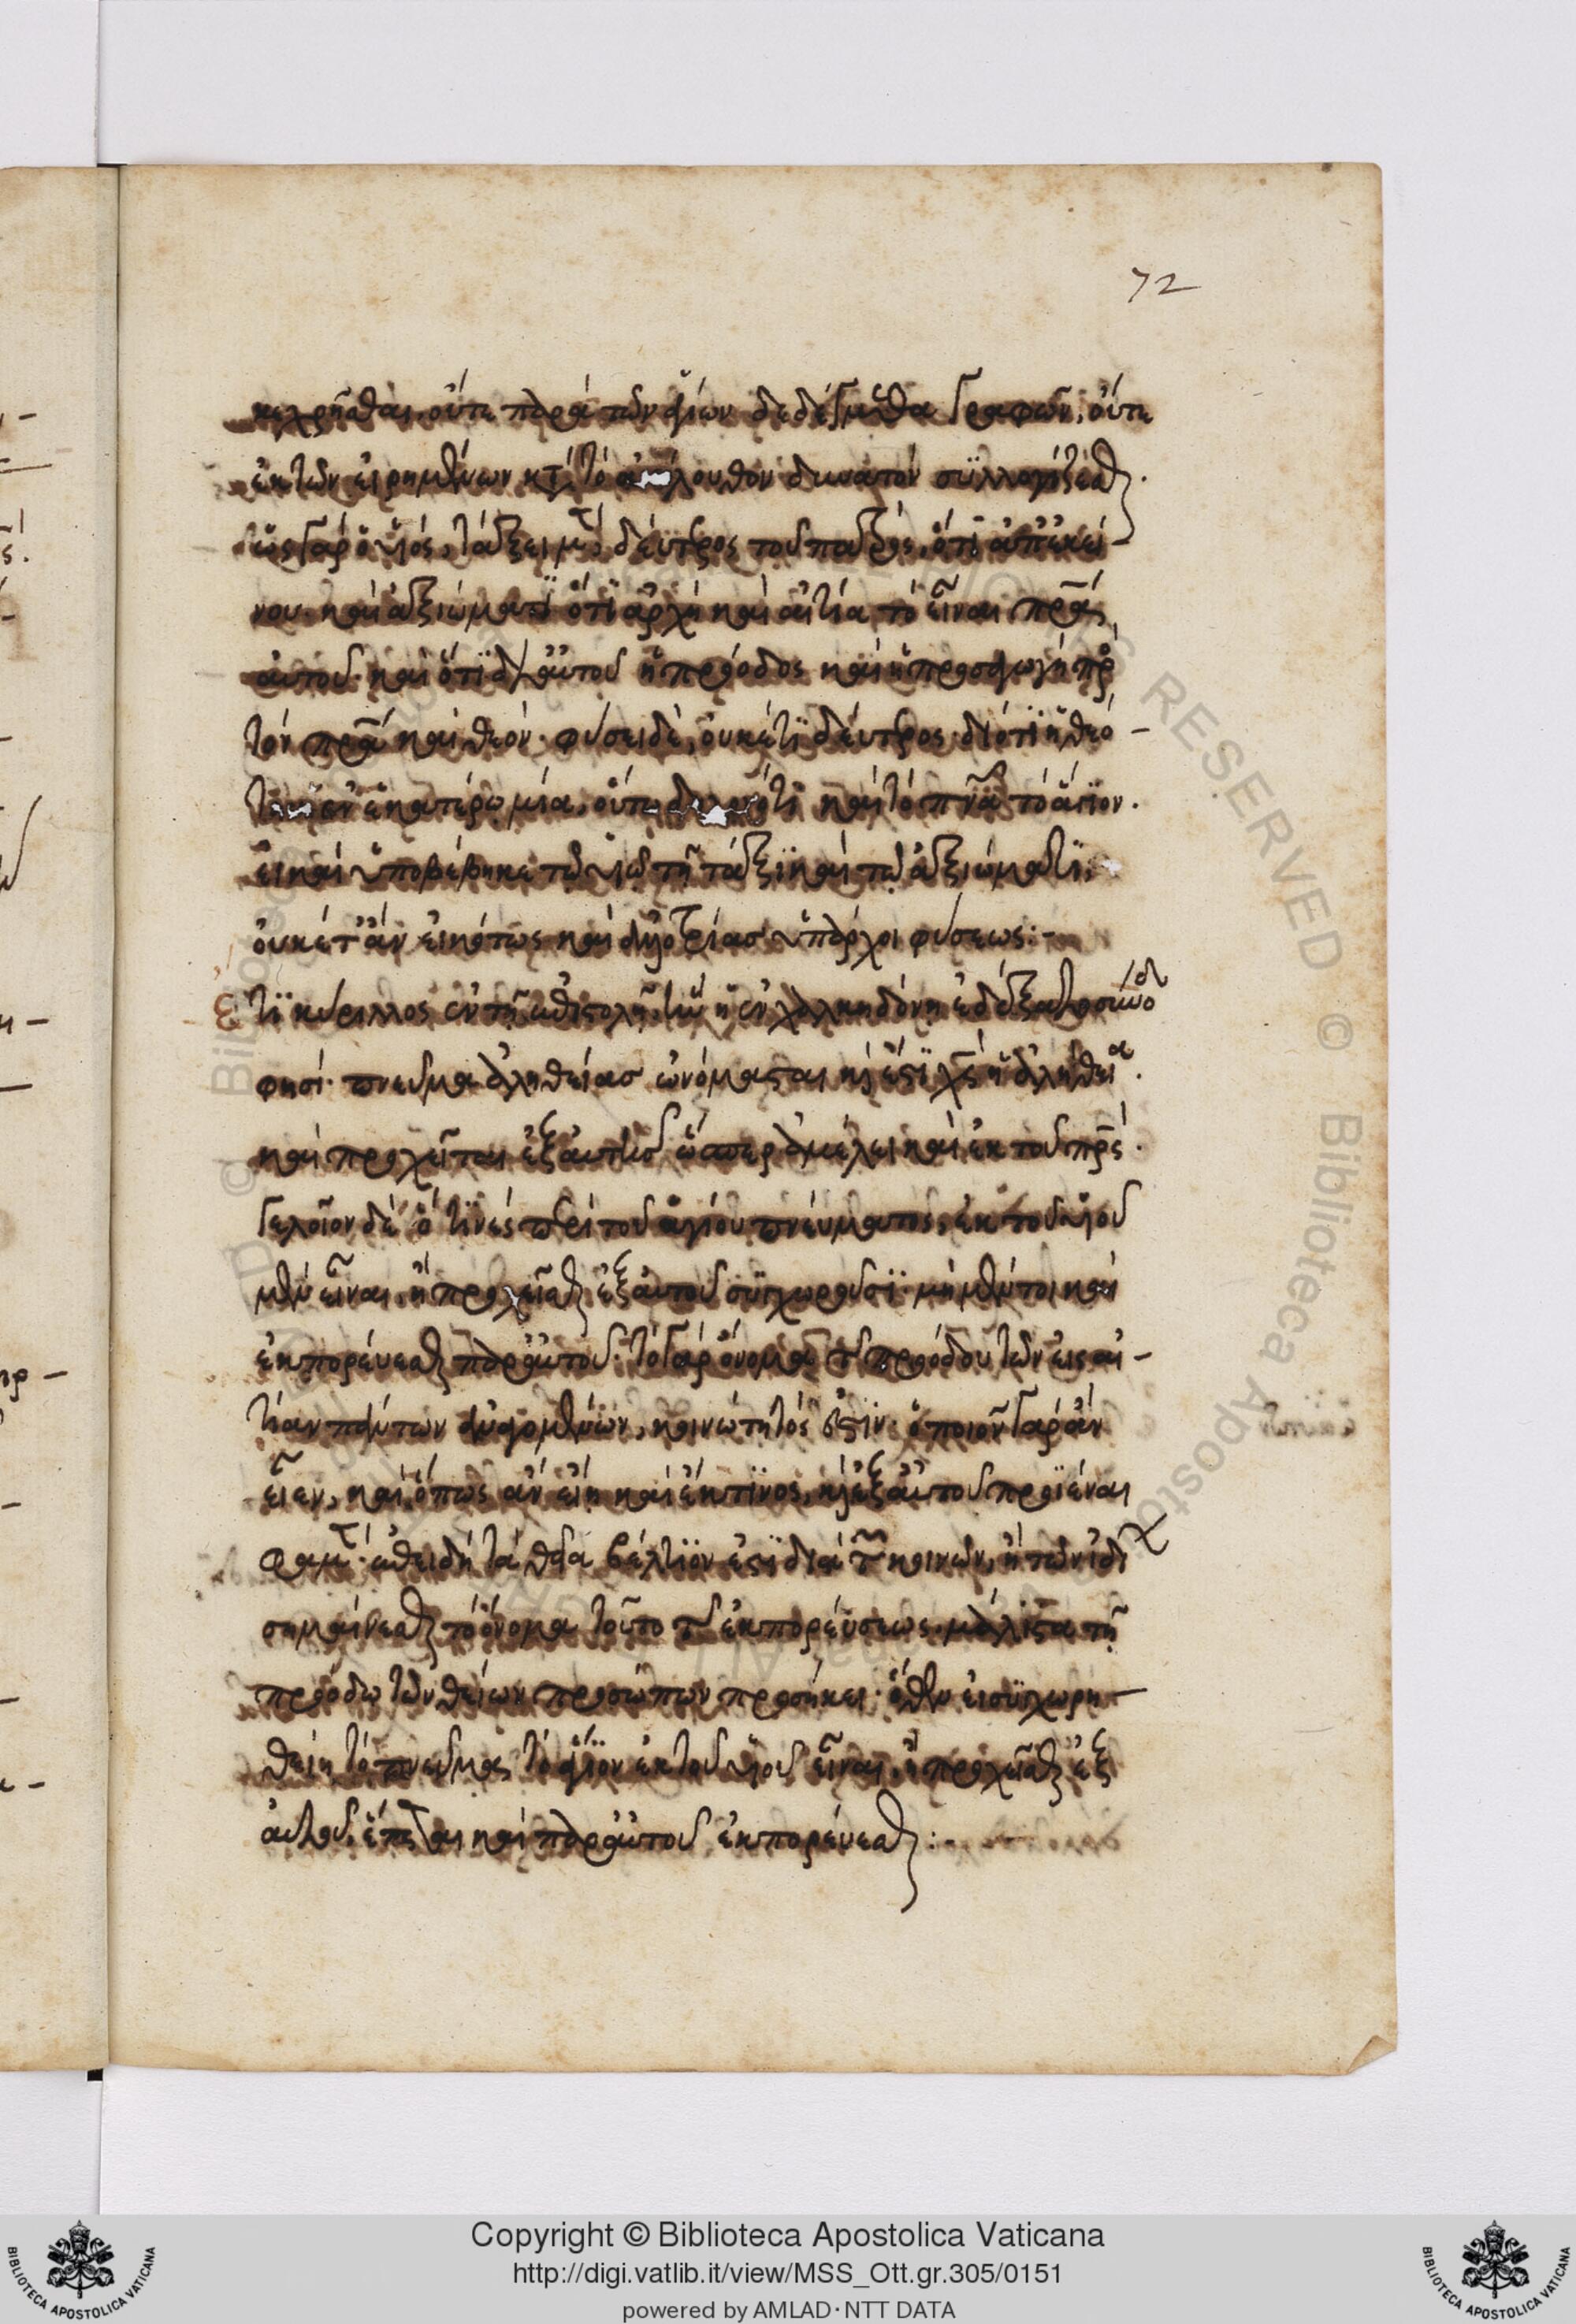 72
κεχρῆσθαι, οὔτε παρὰ τῶν ἁγίων δεδέγμεθα γραφῶν, οὔτε
ἐκ τῶν εἰρημένων κατὰ τὸ ἀκόλουθον δυνατὸν συλλογίζεσθαι.
ὡς γὰρ ὁ υἱός, τάξει μὲν δεύτερος τοῦ πατρός, ὅτι ἀπ' ἐκεί-
νου. καὶ ἀξιώματι ὅτι ἀρχὴ καὶ αἰτία τὸ εἶναι πρα
αὐτοῦ. καὶ ὅτι δι' αὐτοῦ ἡ πρόοδος καὶ ἡ προσαγωγὴ πρὸς
τὸν πρα καὶ θεόν. φύσει δὲ, οὐκέτι δεύτερος. διότι ἡ θεό-
της ἐν ἑκατέρω μία, οὕτω δηλονότι καὶ τὸ πνα τὸ ἅγιον.
εἰ καὶ ὑποβέβηκε τὸν υἱὸν τῆ τάξει καὶ τῶ ἀξιώματι,
οὐκέτ' ἂν εἰκότως καὶ ἀλλοτρίας ὑπάρχοι φύσεως:-
Ετι κύριλλος ἐν τῆ ἐπιστολῆ, ἣν ἡ ἐν χαλκηδόνη ἐδέξατο σύνοδ
φησί. πνεῦμα ἀληθείας ὠνόμασται καὶ ἔστι χς ἡ ἀλήθεια.
καὶ προχεῖται ἐξ αὐτοῦ ὥσπερ ἀμέλει καὶ ἐκ τοῦ πρς.
γελοῖον δὲ ὅ τινές περὶ τοῦ ἁγίου πνεύματος, ἐκ τοῦ υἱοῦ
μὲν εἶναι, ἢ προχεῖσθαι ἐξ αὐτοῦ συγχωροῦσι. μὴ μέντοι καὶ
ἐκπορεύεσθαι παρ' αὐτοῦ. τὸ γὰρ ὄνομα τῆς προόδου τῶν εἰς αἰ-
τίαν πάντων ἀναγομένων, κοινώτητός ἐστιν. ὁποιονγαρ ἂν
εἶεν, καὶ ὅπως ἂν εἴη καὶ ἔκ τινος, καὶ ἐξ αὐτοῦ προϊέναι
φαμέν. ἐπειδὴ τὰ θεῖα βέλτιον ἐστι διὰ τῶν κοινῶν, ἢ τῶν ἰδί
σημαίνεσθαι, τὸ ὄνομα τοῦτο τῆς ἐκπορεύσεως, μάλιστα τῆ
προόδω τῶν θείων προσώπων προσήκει. ὅθεν εἰ συγχωρη-
θείη τὸ πνεῦμα, τὸ ἅγιον ἐκ τοῦ υἱοῦ εἶναι, ἢ προχεῖσθαι ἐξ
αὐτοῦ, ἕπεται καὶ παρ' αὐτοῦ ἐκπορεύεσθαι:
Copyright © Biblioteca Apostolica Vaticana
http://digi.vatlib.it/view/MSS_Ott.gr.305/0151
powered by AMLAD·NTT DATA